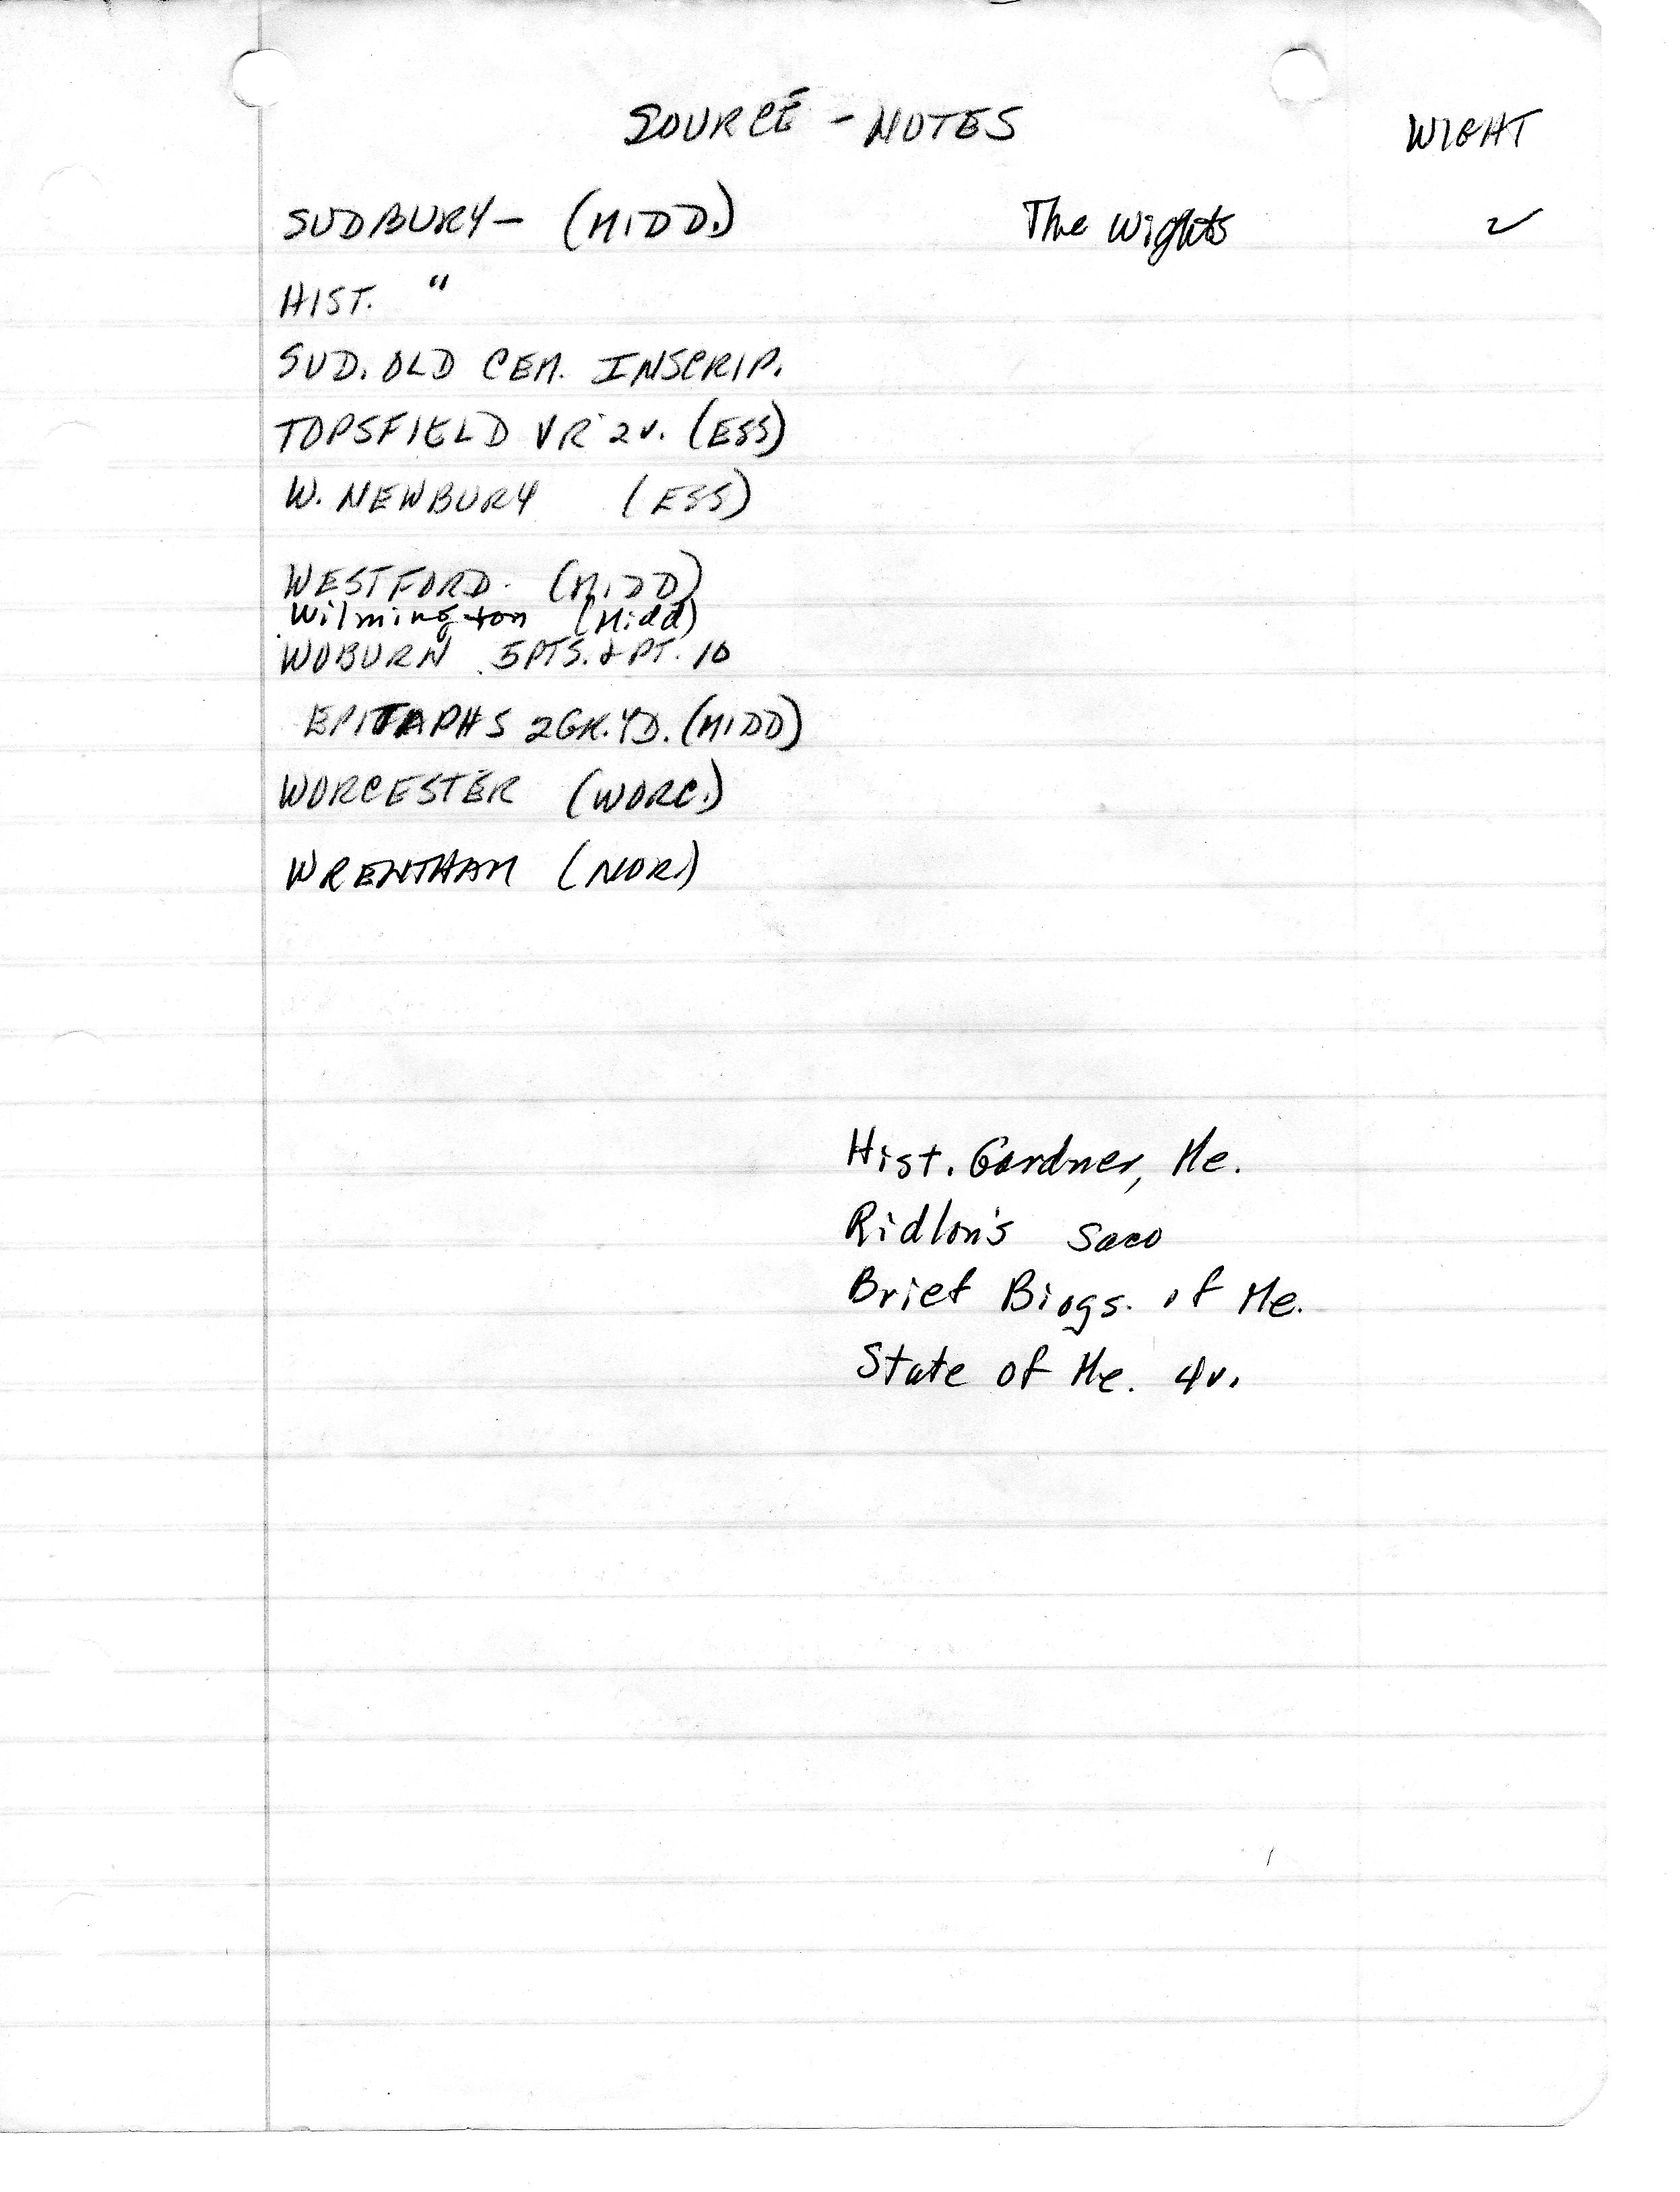 SOURCE - NOTES WIGHT
SUDBURY - (MIDD.) The Wights 2
HIST. "
SUD. OLD CEM. INSCRIP.
TOPSFIELD VR 2v. (ESS)
W. NEWBURY (ESS)
WESTFORD. (MIDD)
Wilmington (Midd)
WOBURN 5 PTS. & PT. 10
EPITAPHS 2 GR. YD. (MIDD)
WORCESTER (WORC.)
WRENTHAM (NOR)
Hist. Gardner, Me.
Ridlon's Saco
Brief Biogs. of Me.
State of Me. 4v.